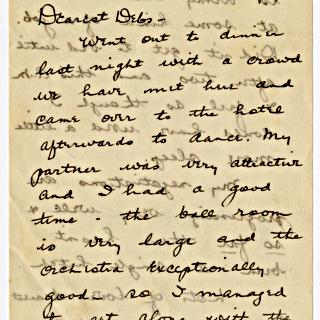 Dearest Debs-
Went out to dinner
last night with a crowd
we have met here and
came over to the hotel
afterwards to dance. My
partner was very attractive
and I had a good
time - the ball room
is very large and the
orchestra exceptionally
good - so I managed
to get along with the